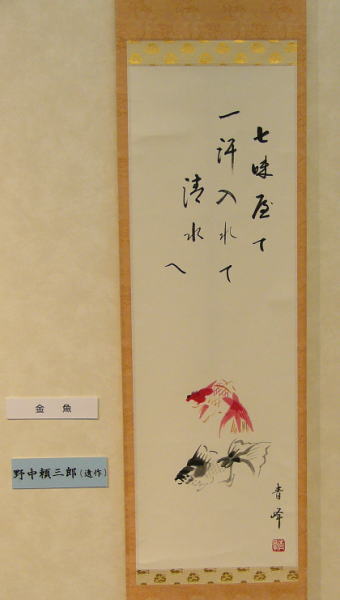 七味屋て
一汗入れて
清水へ
金魚
野中頼三郎(遺作)